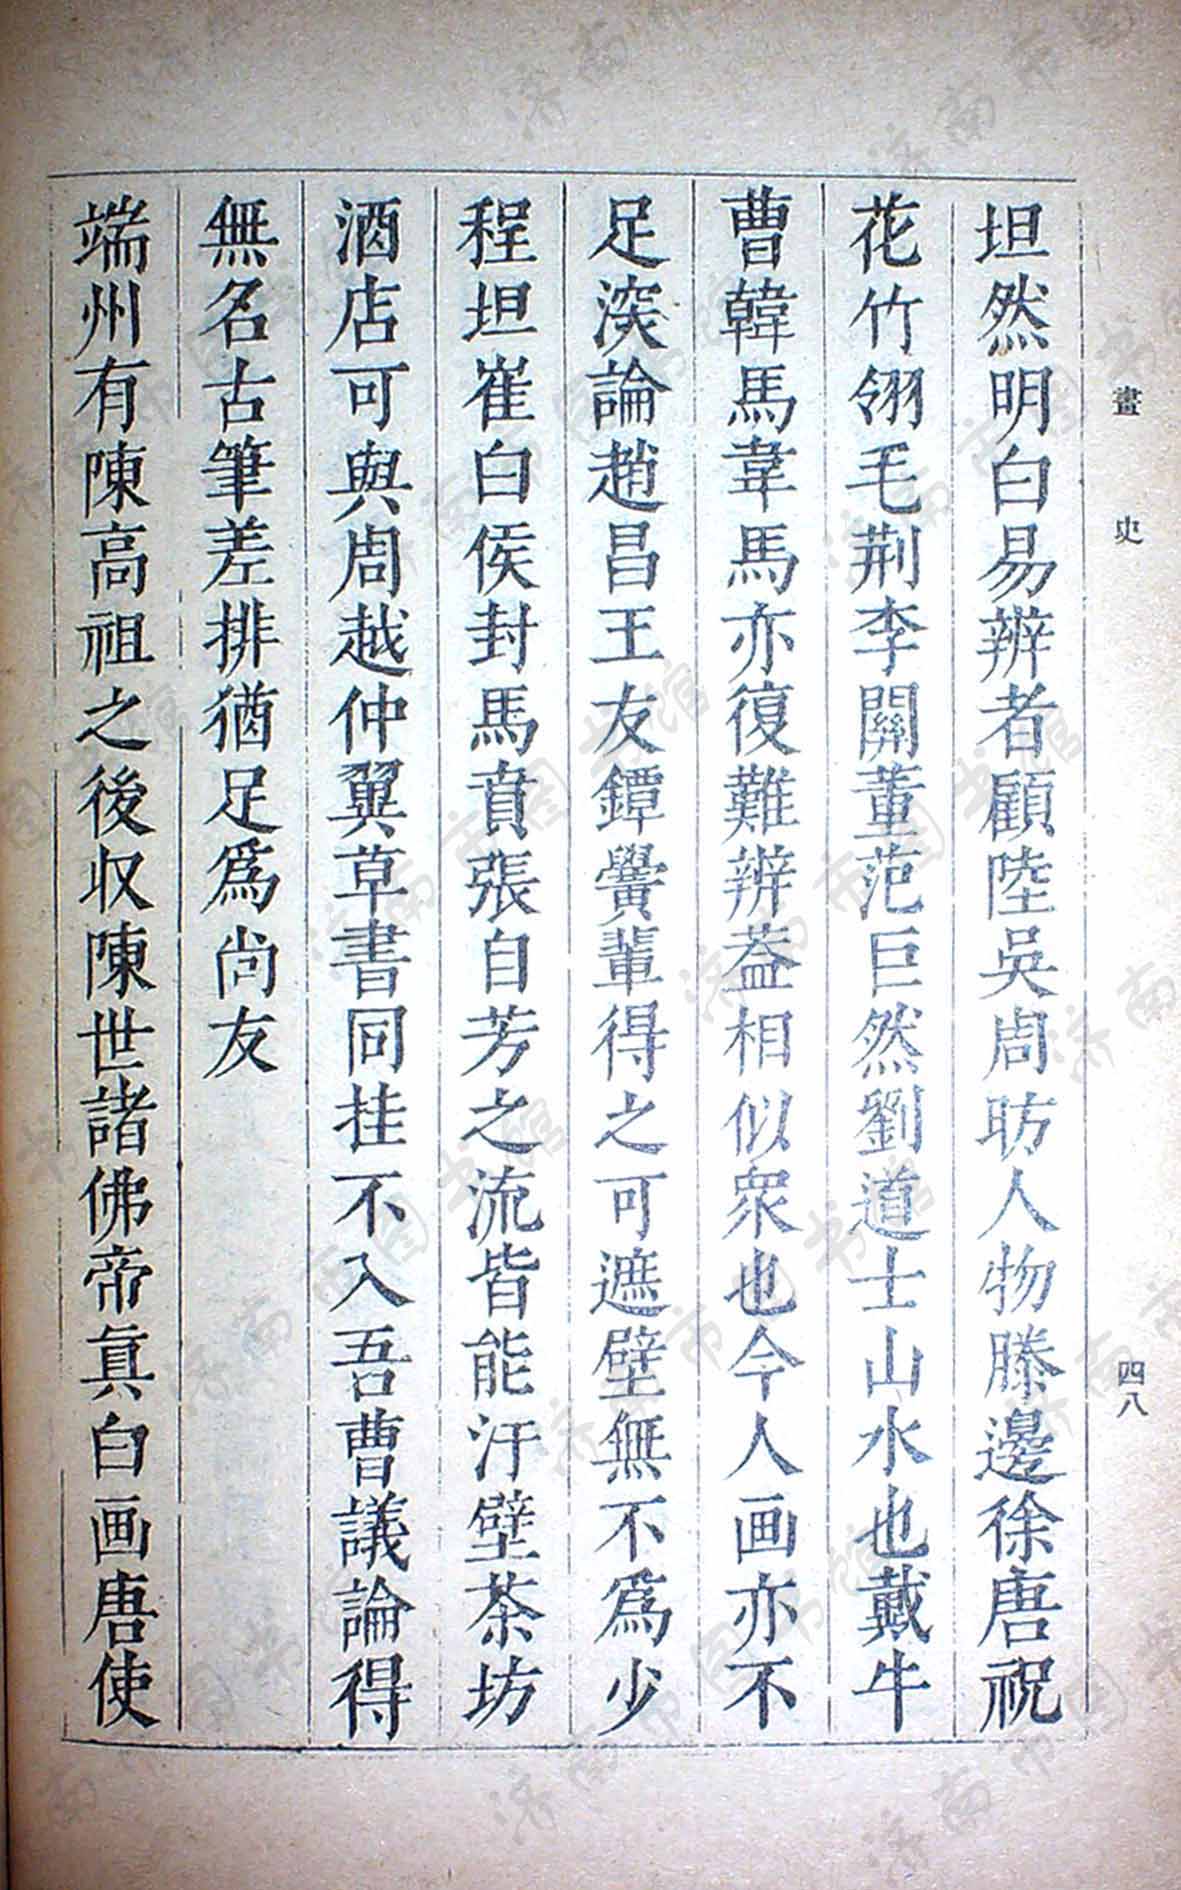 畫史
四八
坦然明白易辨者顧陸吳周昉人物滕邊徐唐祝
花竹翎毛荆李關董范巨然劉道士山水也戴牛
曹韓馬韋馬亦復難辨葢相似衆也今人画亦不
足深論趙昌王友鐔黌輩得之可遮壁無不爲少
程坦崔白侯封馬賁張自芳之流皆能汙壁茶坊
酒店可與周越仲翼草書同挂不入吾曹議論得
無名古筆差排猶足爲尚友
端州有陳高祖之後収陳世諸佛帝真白画唐使
济南市图书馆